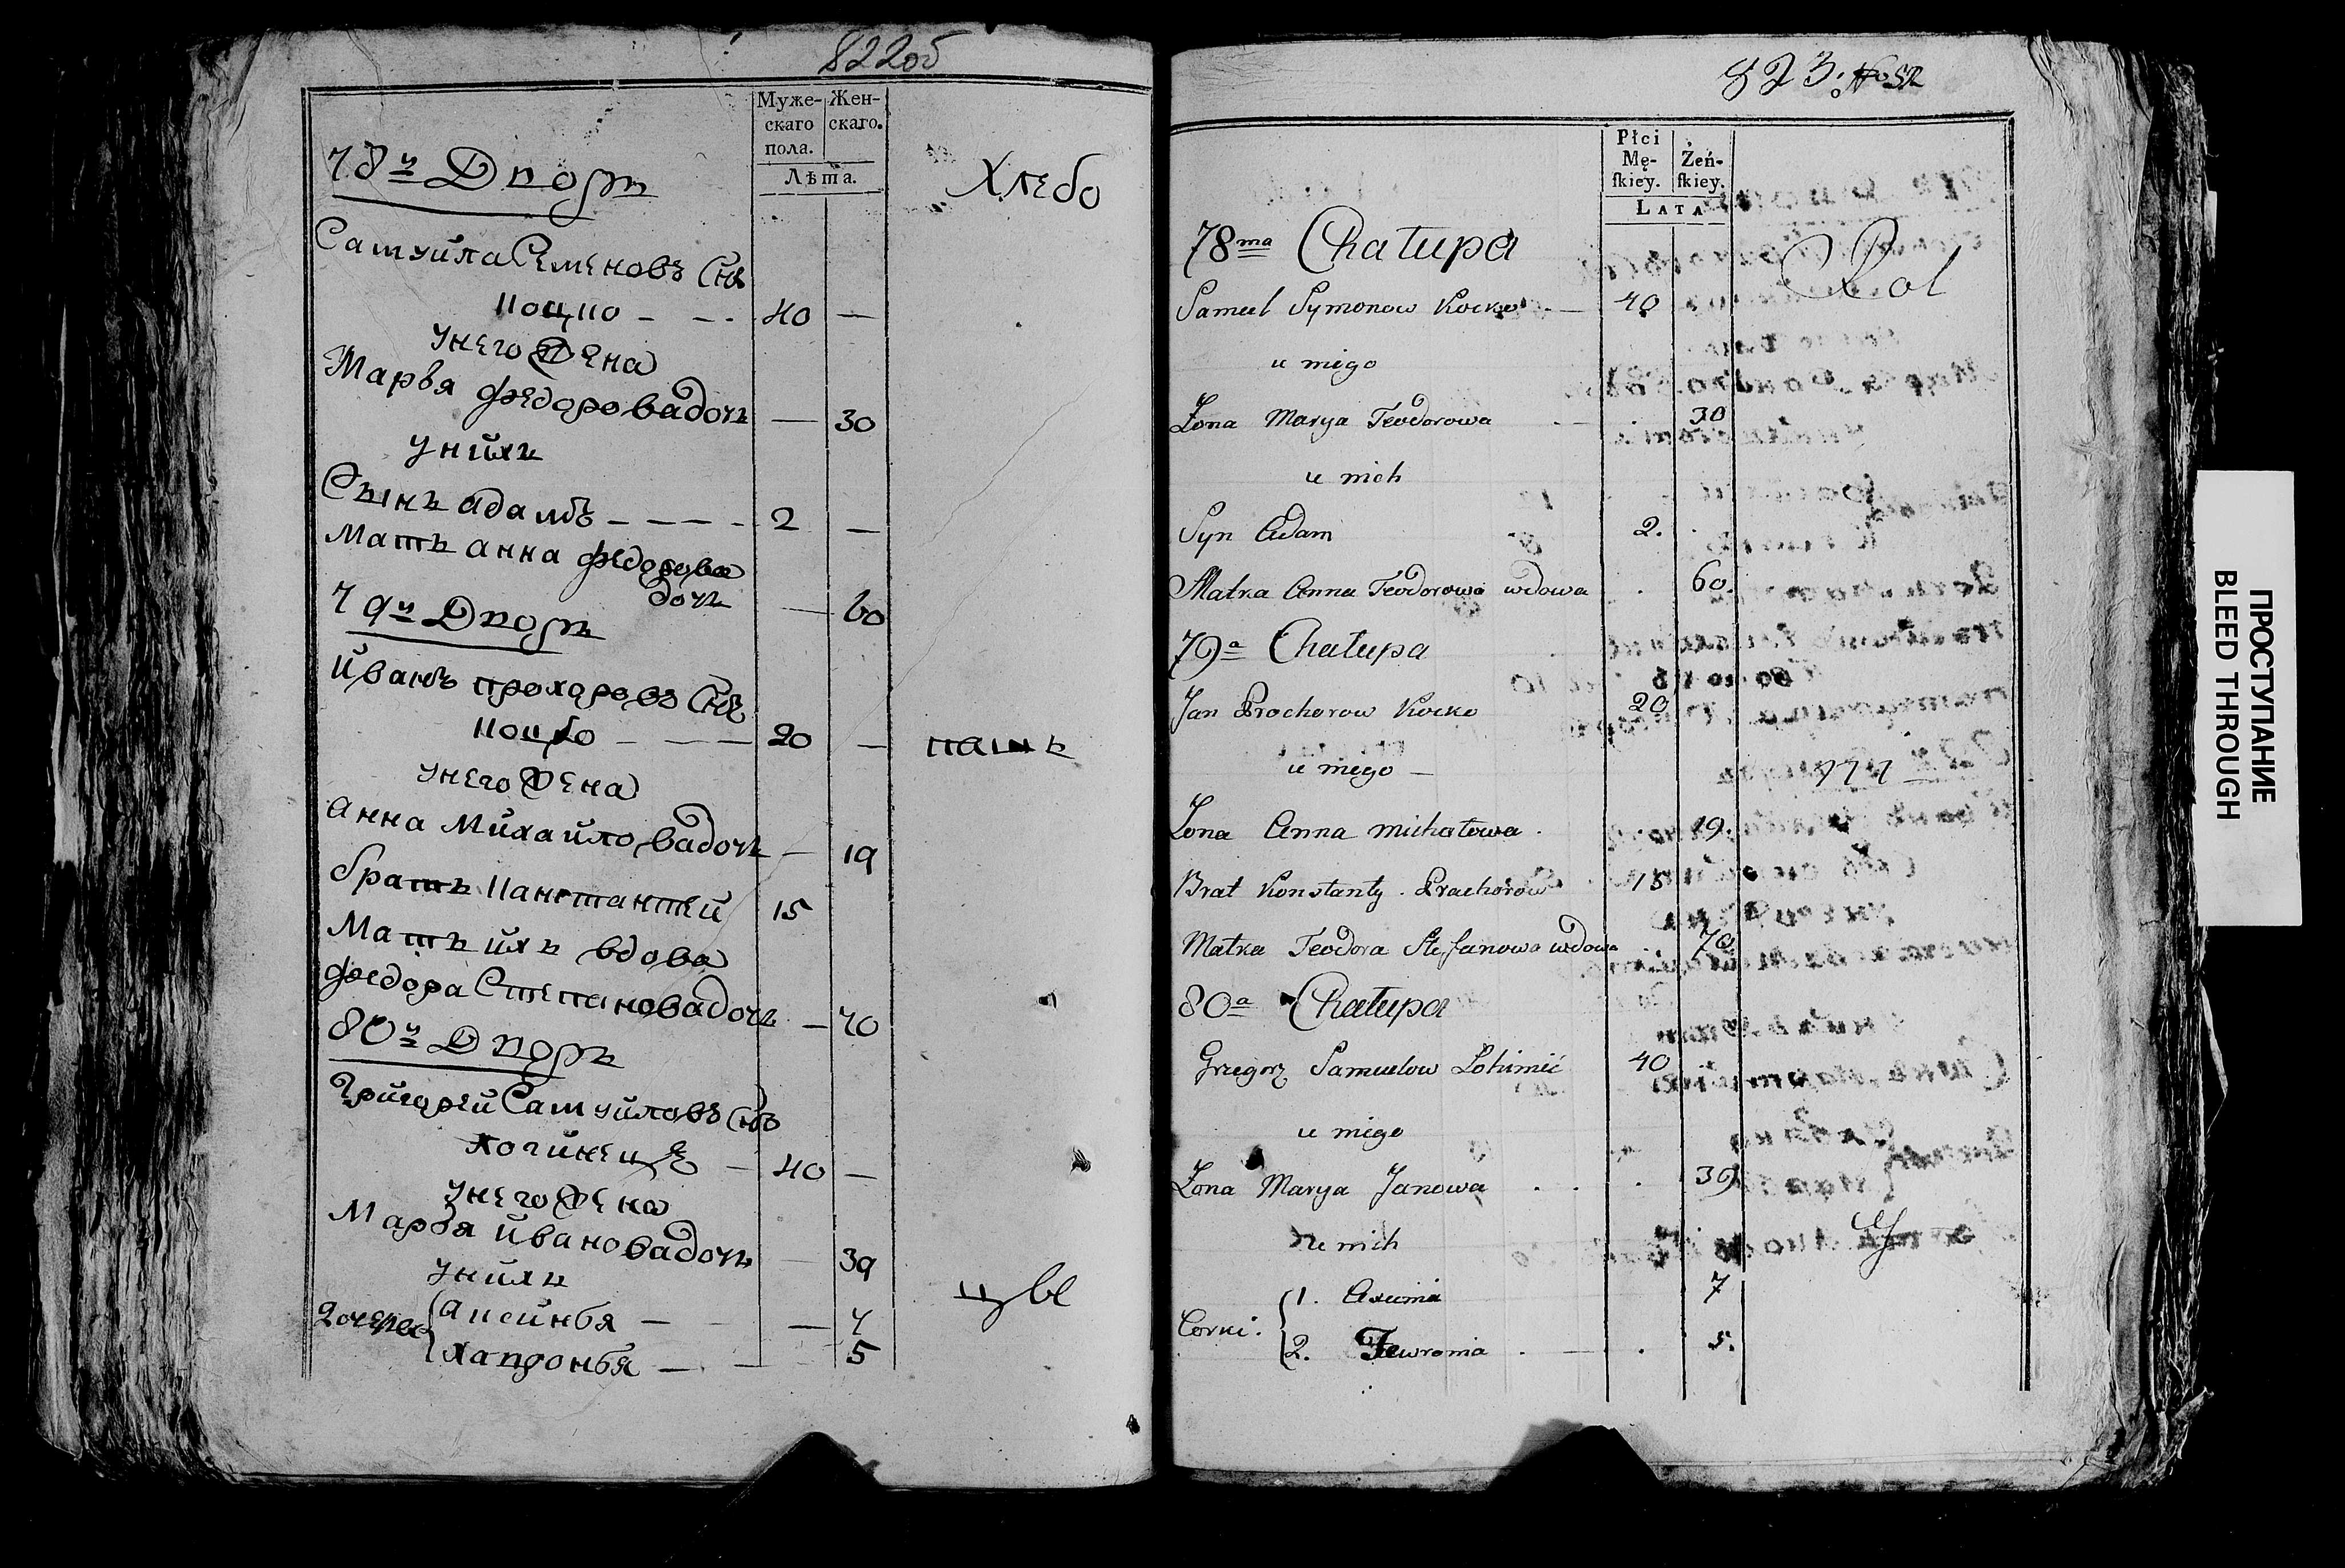 822об
Муже- Жен-
скаго скаго.
пола.
Лѣта.
78й Дворъ
Хлебо
Самуйла Семеновъ Снъ
Коцко - - - 40 —
Унего Жена
Марья Федоровадочь — 30
Унихъ
Сынъ адамъ - - - - 2 —
Мать анна Федорова
дочь — 60
79й Дворъ
Иванъ прохоровъ Снъ
Коцко - — — 20 —
пашъ
Унего Жена
анна Михайловадочь — 19
братъ Канстантей 15
Мать ихъ вдова
Федора Степановадочь — 70
80й Дворъ
Григорей Самуйловъ Снъ
— 40 —
Унего Жена
Марья Ивановадочь — 39
Унихъ
дочери
аксинья — — 7
5
823:
Płci
Mę- Żeń-
skiey. skiey.
LATA
78ma Chałupa
Rol
Samuel Symonow Kocko 40
u niego
Żona Marya Teodorowa 30
u nich
Syn Adam 2.
Matka Anna Teodorowa wdowa 60.
79a Chałupa
Jan Prochorow Kocko 20
u niego —
Żona Anna Michałowa . 19.
Brat Konstanty . Prachorow 15
Matka Teodora Stefanowa wdowa 70
80a Chałupa
Grzegorz Samuelow 40
u niego
Żona Marya Janowa . . . 39
u nich
Corki:
1. Axinia 7
2. Fewronia . — . 5.
ПРОСТУПАНИЕ
BLEED THROUGH